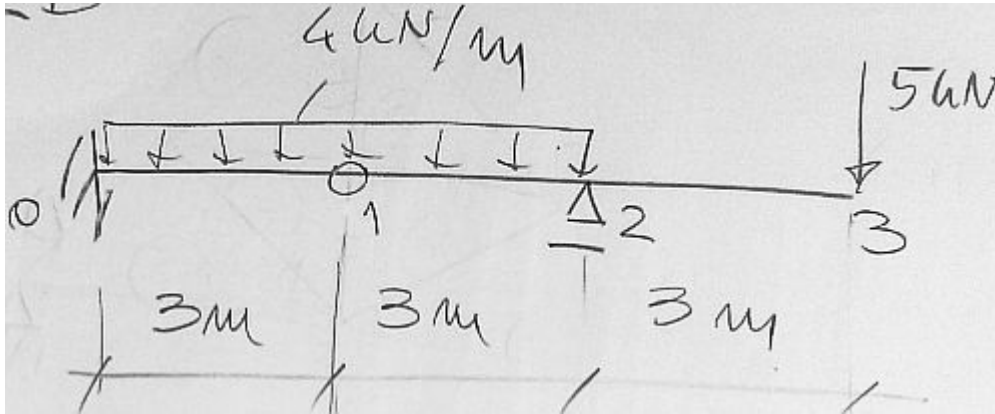 4kN/m
5kN
0
1
2
3
3m 3m 3m